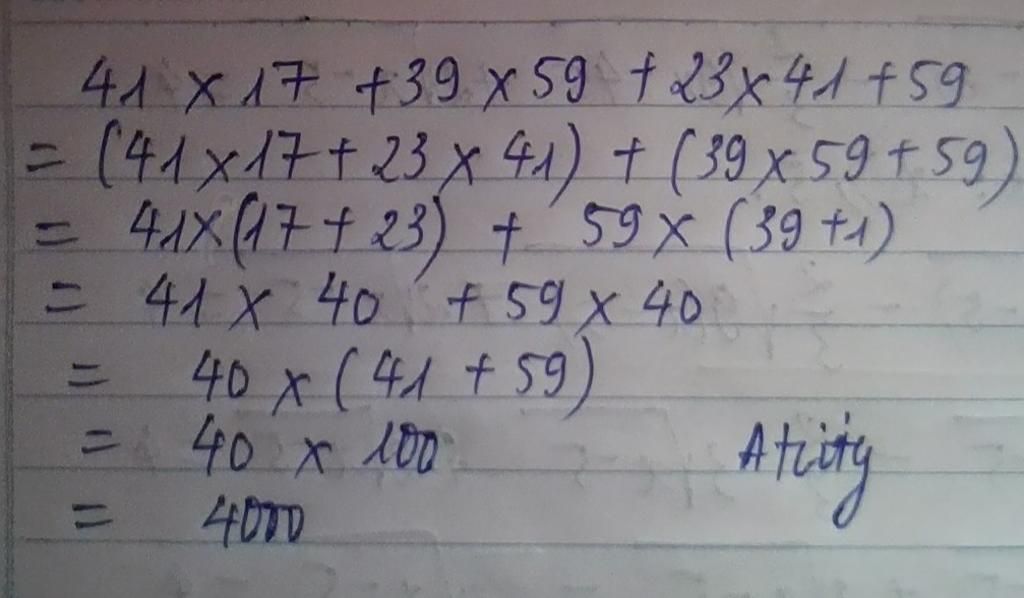 41 × 17 + 39 × 59 + 23 × 41 + 59
= (41 × 17 + 23 × 41) + (39 × 59 + 59)
= 41 × (17 + 23) + 59 × (39 + 1)
= 41 × 40 + 59 × 40
= 40 × (41 + 59)
= 40 × 100
= 4000